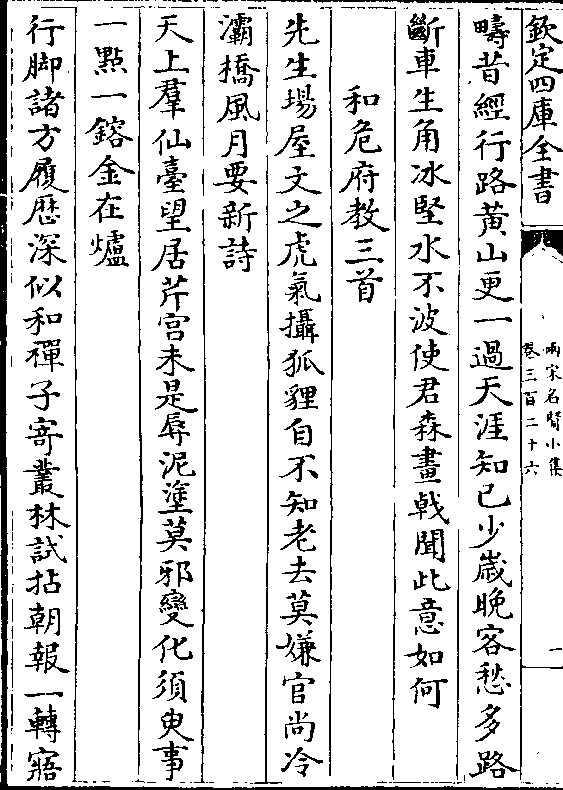 欽定四庫全書
兩宋名賢小集
卷三百二十六
一
疇昔經行路黃山更一過天涯知已少嵗晚客愁多路
斷車生角冰堅水不波使君森畫戟聞此意如何
和危府教三首
先生場屋文之虎氣攝狐貍自不知老去莫嫌官尚冷
灞橋風月要新詩
天上羣仙臺望居芹宫未是辱泥塗莫邪變化須臾事
一點一鎔金在爐
行脚諸方履歴深似和禪子寄叢林試拈朝報一轉寤